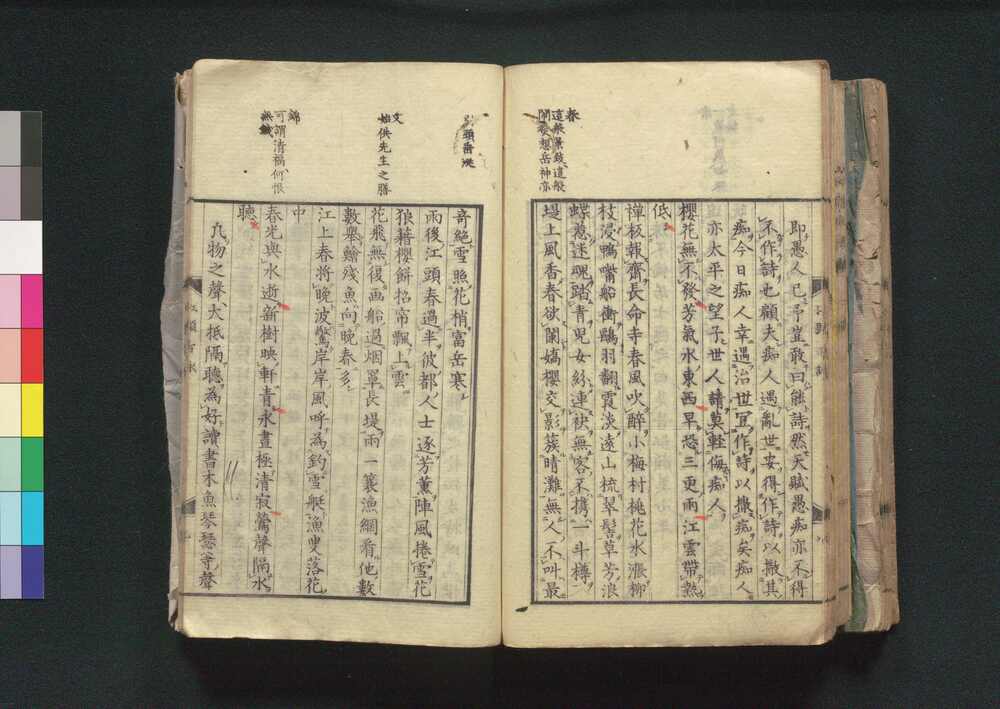 春
這般景致這般
想岳神亦
即愚人已予豈敢曰能詩然天賦愚痴亦不得
不作詩也顧夫痴人遇亂世安得作詩以撒其
痴今日痴人幸遇治世宜作詩以撒痴矣痴人
亦太平之望子世人請莫輕侮痴人
櫻花無不發芳氣水東西早恐三更雨江雲帶熱
低
禪板報齋長命寺春風吹醉小梅村桃花水漲柳
枝浸鴨嘴船衝鷗羽翻霞淡遠山梳翠髻草芳浪
蝶惹迷魂踏青兒女紛連袂無客不携一斗樽
堤上風香春欲闌嬌櫻交影蔟晴灘無人不叫最
引頭
文
始供先生之膳
錦
可謂清福何恨
奇絕雪照花梢富岳寒
雨後江頭春過半彼都人士逐芳薰陣風捲雪花
狼藉櫻餅招帘飄上雲
花飛無復画船過烟罩長堤雨一簑漁網看他數
數舉鱠殘魚向晚春多
江上春將晚波驚岸岸風呼為釣雪艇漁叟落花
中
春光與水逝新樹映軒青永晝極清寂鶯聲隔水
聽
凡物之聲大抵隔聽為好讀書木魚琴瑟等聲